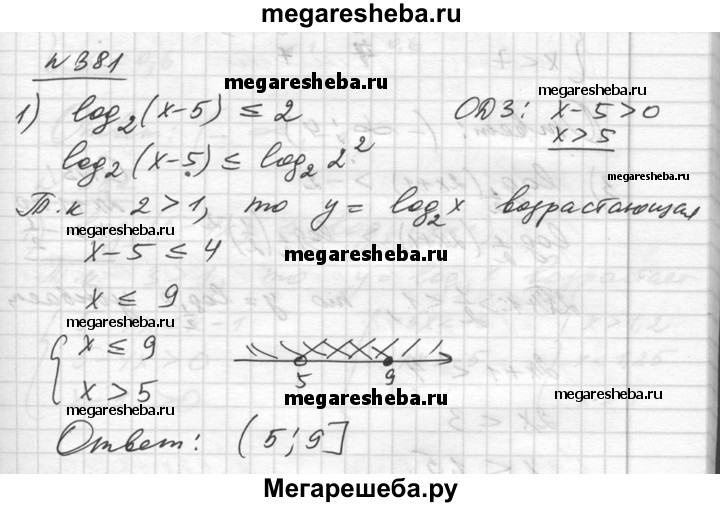 megaresheba.ru
N 381
megaresheba.ru
1) log₂(x-5) ≤ 2 ОДЗ: x-5>0
x>5
log₂(x-5) ≤ log₂ 2²
megaresheba.ru
Т.к 2>1, то y = log₂x возрастающая
x-5 ≤ 4
megaresheba.ru megaresheba.ru
x ≤ 9
megaresheba.ru
{ x ≤ 9
x > 5
5 9
megaresheba.ru megaresheba.ru megaresheba.ru
Ответ: (5; 9]
Мегарешеба.ру